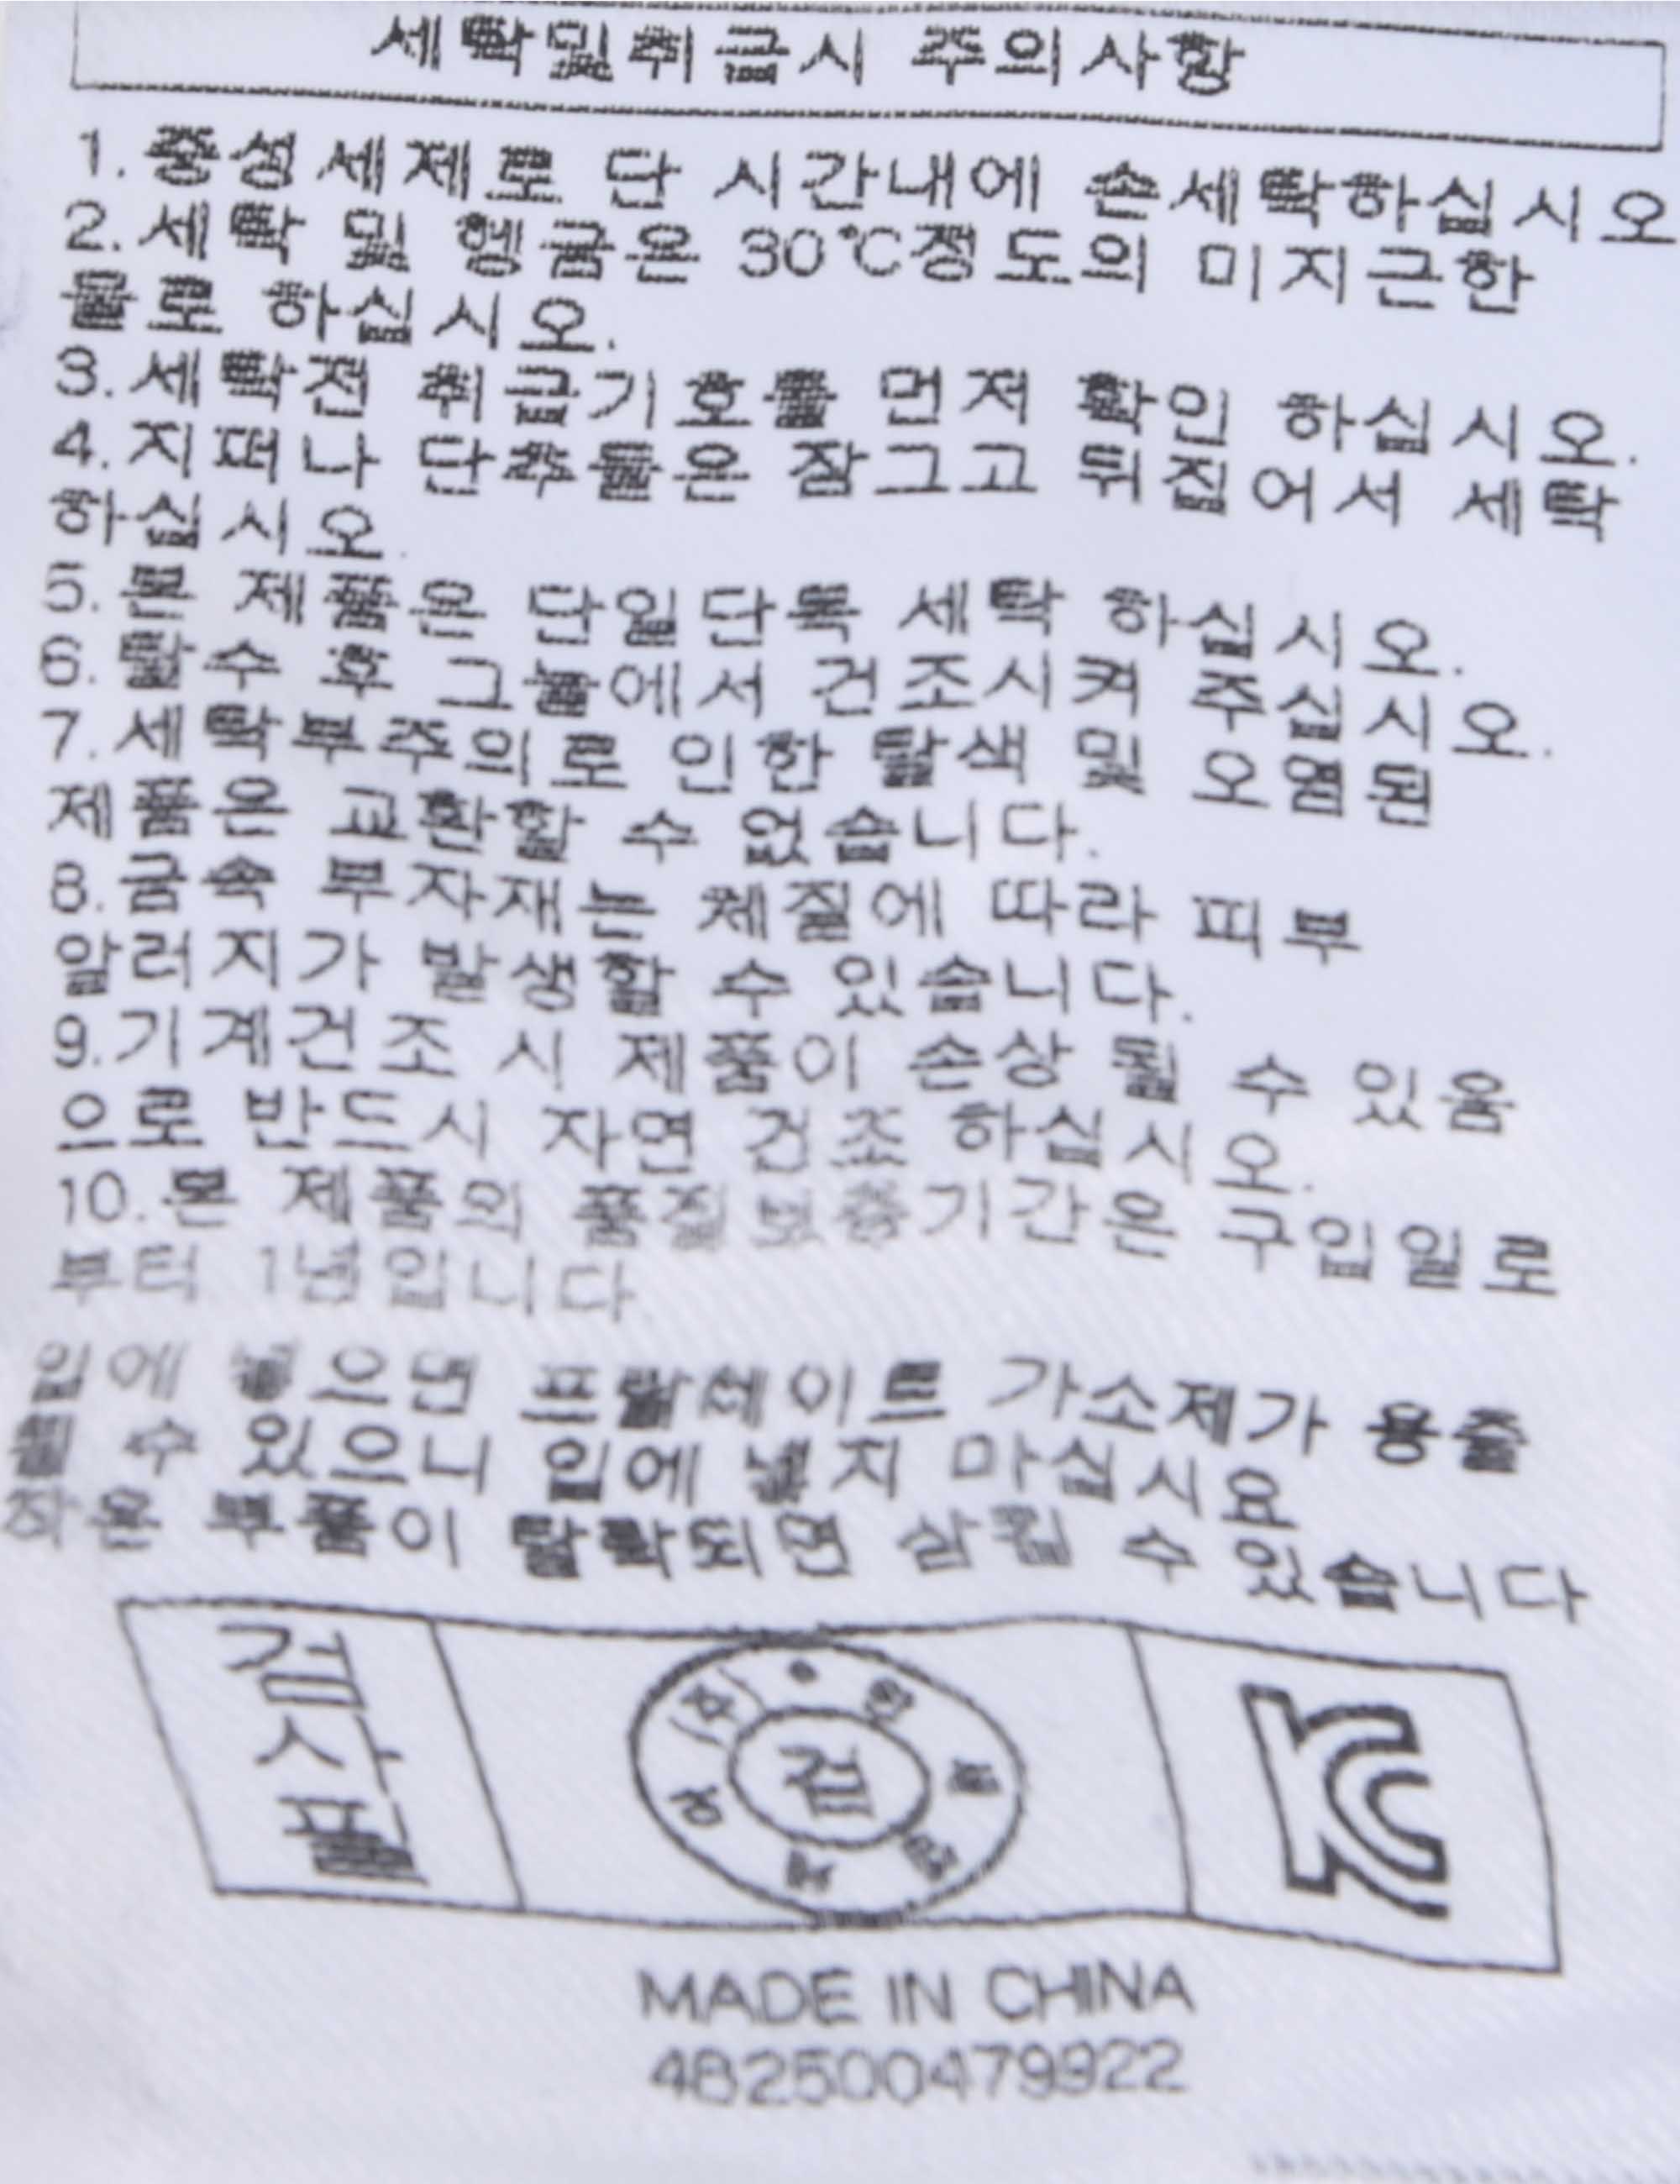 세탁및취급시 주의사항
1. 중성세제로 단 시간내에 손세탁하십시오
2. 세탁 및 헹굼은 30℃정도의 미지근한
물로 하십시오.
3. 세탁전 취급기호를 먼저 확인 하십시오.
4. 지퍼나 단추들은 잠그고 뒤집어서 세탁
하십시오.
5. 본 제품은 단일단독 세탁 하십시오.
6. 탈수 후 그늘에서 건조시켜 주십시오.
7. 세탁부주의로 인한 탈색 및 오염된
제품은 교환할 수 없습니다.
8. 금속 부자재는 체질에 따라 피부
알러지가 발생할 수 있습니다.
9. 기계건조 시 제품이 손상 될 수 있음
으로 반드시 자연 건조 하십시오.
10. 본 제품의 품질보증기간은 구입일로
부터 1년입니다
입에 넣으면 프탈레이트 가소제가 용출
될 수 있으니 입에 넣지 마십시요
작은 부품이 탈락되면 삼킬 수 있습니다
검
사
필
검
KC
MADE IN CHINA
482500479922